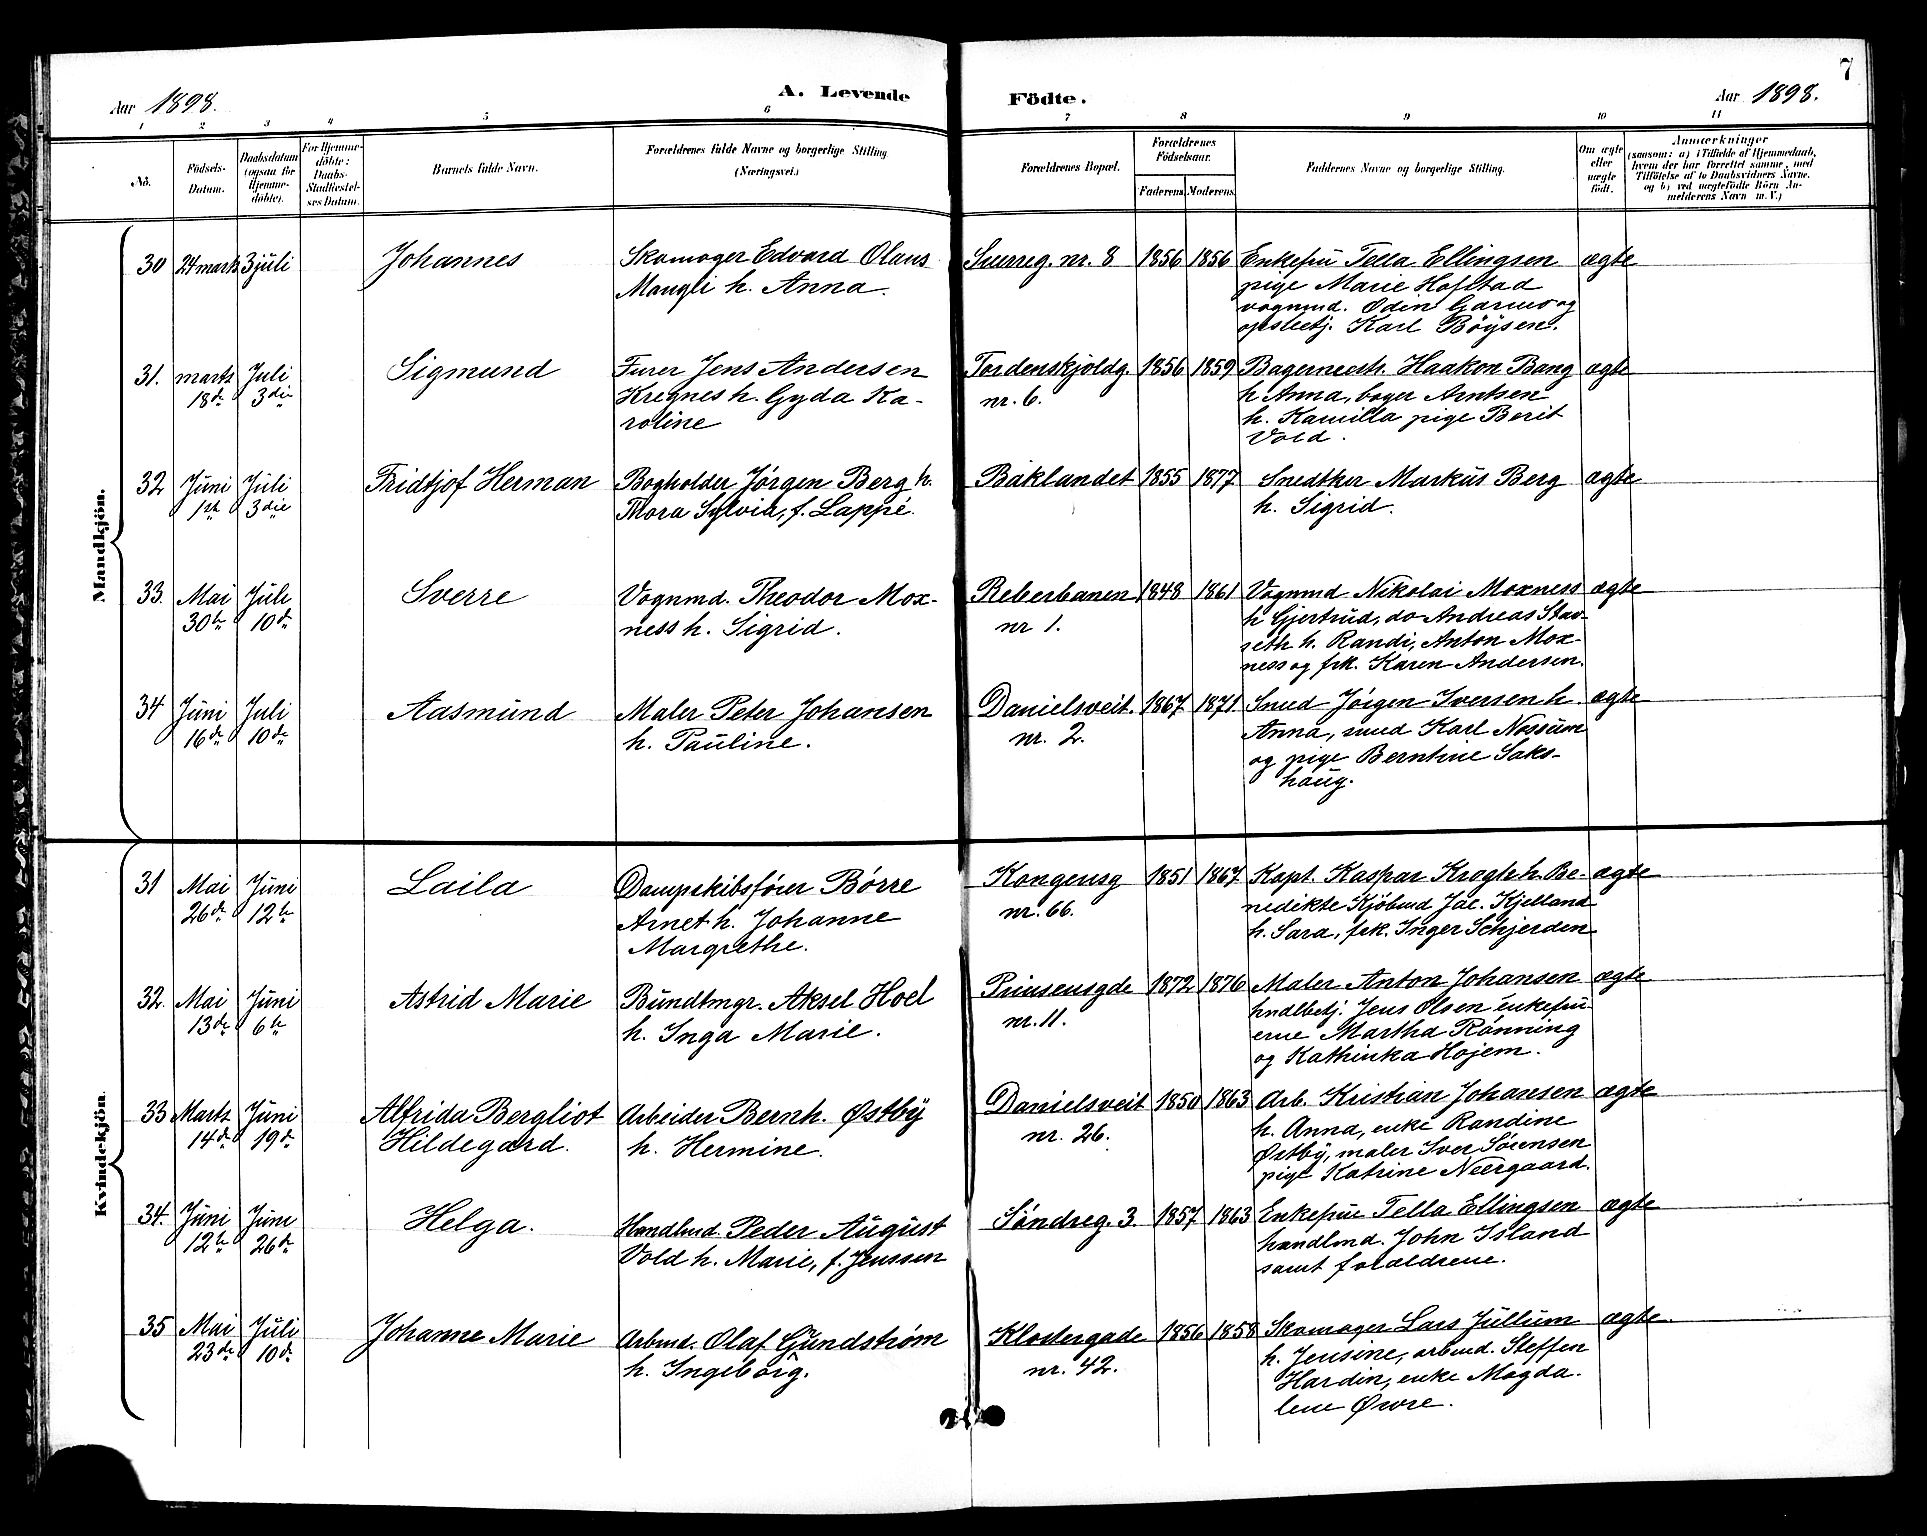 7
Aar 1898.
A. Levende
Födte.
Aar 1898.
1 2 3 4 5 6 7 8 9 10 11
No.
Födsels-
Datum.
Daabsdatum
(ogsaa for
Hjemme-
döbte).
For Hjemme-
döbte:
Daabs-
Stadfæstel-
ses Datum.
Barnets fulde Navn.
Forældrenes fulde Navne og borgerlige Stilling
(Næringsvei.)
Forældrenes Bopæl.
Forældrenes
Födselsaar.
Faderens Moderens
Faddernes Navne og borgerlige Stilling.
Om ægte
eller
uægte
födt.
Anmærkninger
(saasom: a) i Tilfælde af Hjemmedaab,
hvem der har forrettet samme, med
Tilföielse af to Daabsvidners Navne.
og b) ved uægtefödte Börn An-
melderens Navn m. V.)
Mandkjön.
30 24 marts 3 juli Johannes
Skomager Edvard Olaus
Maugli h. Anna.
nr. 8 1856 1856
Enkefru Tella Ellingsen
pige Marie Hofstad
vognmd. Odin Garmo og
Karl Böysen.
ægte
31. marts
18de
Juli
3die
Sigmund
Furer Jens Andersen
Kregnes h. Gyda Ka-
roline
Tordenskjoldg.
nr. 6.
1856 1859
Bagermesth. Haakon Bang
h Anna, bager Arntsen
h. Kamilla pige Berit
Vold.
ægte
32 Juni
1ste
Juli
3die
Fridtjof Herman
Bogholder Jørgen Berg h.
Thora Sylvia, f. Lappé.
Baklandet 1855 1877
Snedker Markus Berg
h. Sigrid.
ægte
33. Mai
30te
Juli
10de
Sverre
Vognmd. Theodor Mox-
ness h. Sigrid.
Reberbanen
nr 1.
1848 1861
Vognmd Nikolai Moxness
h Gjertrud, do Andreas Stav-
seth h. Randi, Anton Mox-
ness og frk. Karen Andersen.
ægte
34 Juni
16de
Juli
10de
Aasmund
Maler Peter Johansen
h. Pauline.
Danielsveit.
nr. 2.
1867 1871.
Smed Jörgen Iversen h.
Anna, smed Karl Nossum
og pige Berntine Saks-
haug.
ægte
Kvindekjön.
31 Mai
26de
Juni
12te
Laila
Dampskibsfører Börre
Arnet h. Johanne
Margrethe.
Kongensg
nr. 66.
1851 1867
Kapt. Kaspar Krogh h. Be-
nedikte Kjöbmd Jac. Kjelland
h. Sara, frk. Inger Schjerden
ægte
32. Mai
13de
Juni
6te
Astrid Marie
Bundtmgr. Aksel Hoel
h. Inga Marie.
Prinsensgde
nr. 11.
1872 1876
Maler Anton Johansen
hndlbetj. Jens Olsen enkefru-
erne Martha Rønning
og Kathinka Hojem.
ægte
33 Marts
14de
Juni
19de
Alfrida Bergliot
Hildegard.
Arbeider Bernh. Østby
h. Hermine.
Danielsveit
nr. 26.
1850 1863
Arb. Kristian Johansen
h. Anna, enke Randine
Østby, maler Iver Sörensen
pige Katrine Neergaard.
ægte
34. Juni
12te
Juni
26de
Helga.
Handlmd. Peder August
Vold h. Marie, f. Jenssen
Søndreg. 3. 1857 1863
Enkefrue Tella Ellingsen
handlmd. John Island
samt forældrene.
ægte
35 Mai
23de
Juli
10de
Johanne Marie
Arbmd. Olaf Gundstrøm
h. Ingeborg.
Klostergade
nr. 42.
1856 1858
Skomager Lars Jullum
h. Jensine, arbmd. Steffen
Hardin, enke Magda-
lene Øvre.
ægte.